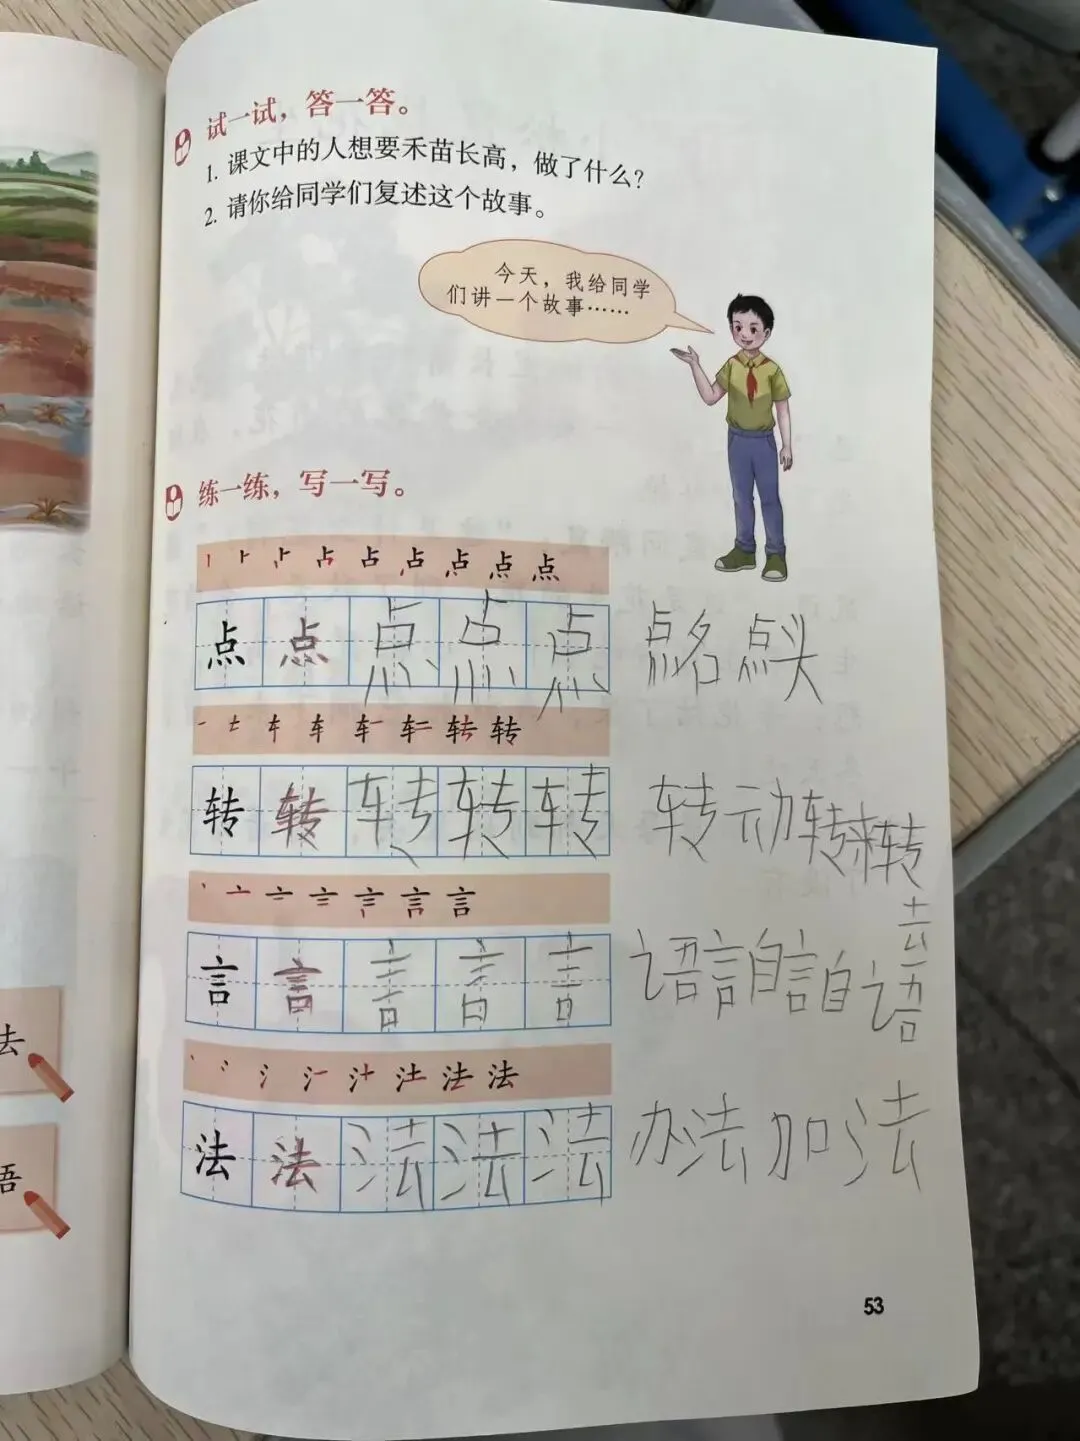 试一试，答一答。
1. 课文中的人想要禾苗长高，做了什么？
2. 请你给同学们复述这个故事。
今天，我给同学
们讲一个故事……
练一练，写一写。
点
点 点 点 点 点 点名 点头
转
转 转 转 转 转 转动 转来转
去
言
言 言 言 言 言 语言 自言自语
法
法 法 法 法 法 办法 加法
去
语
53